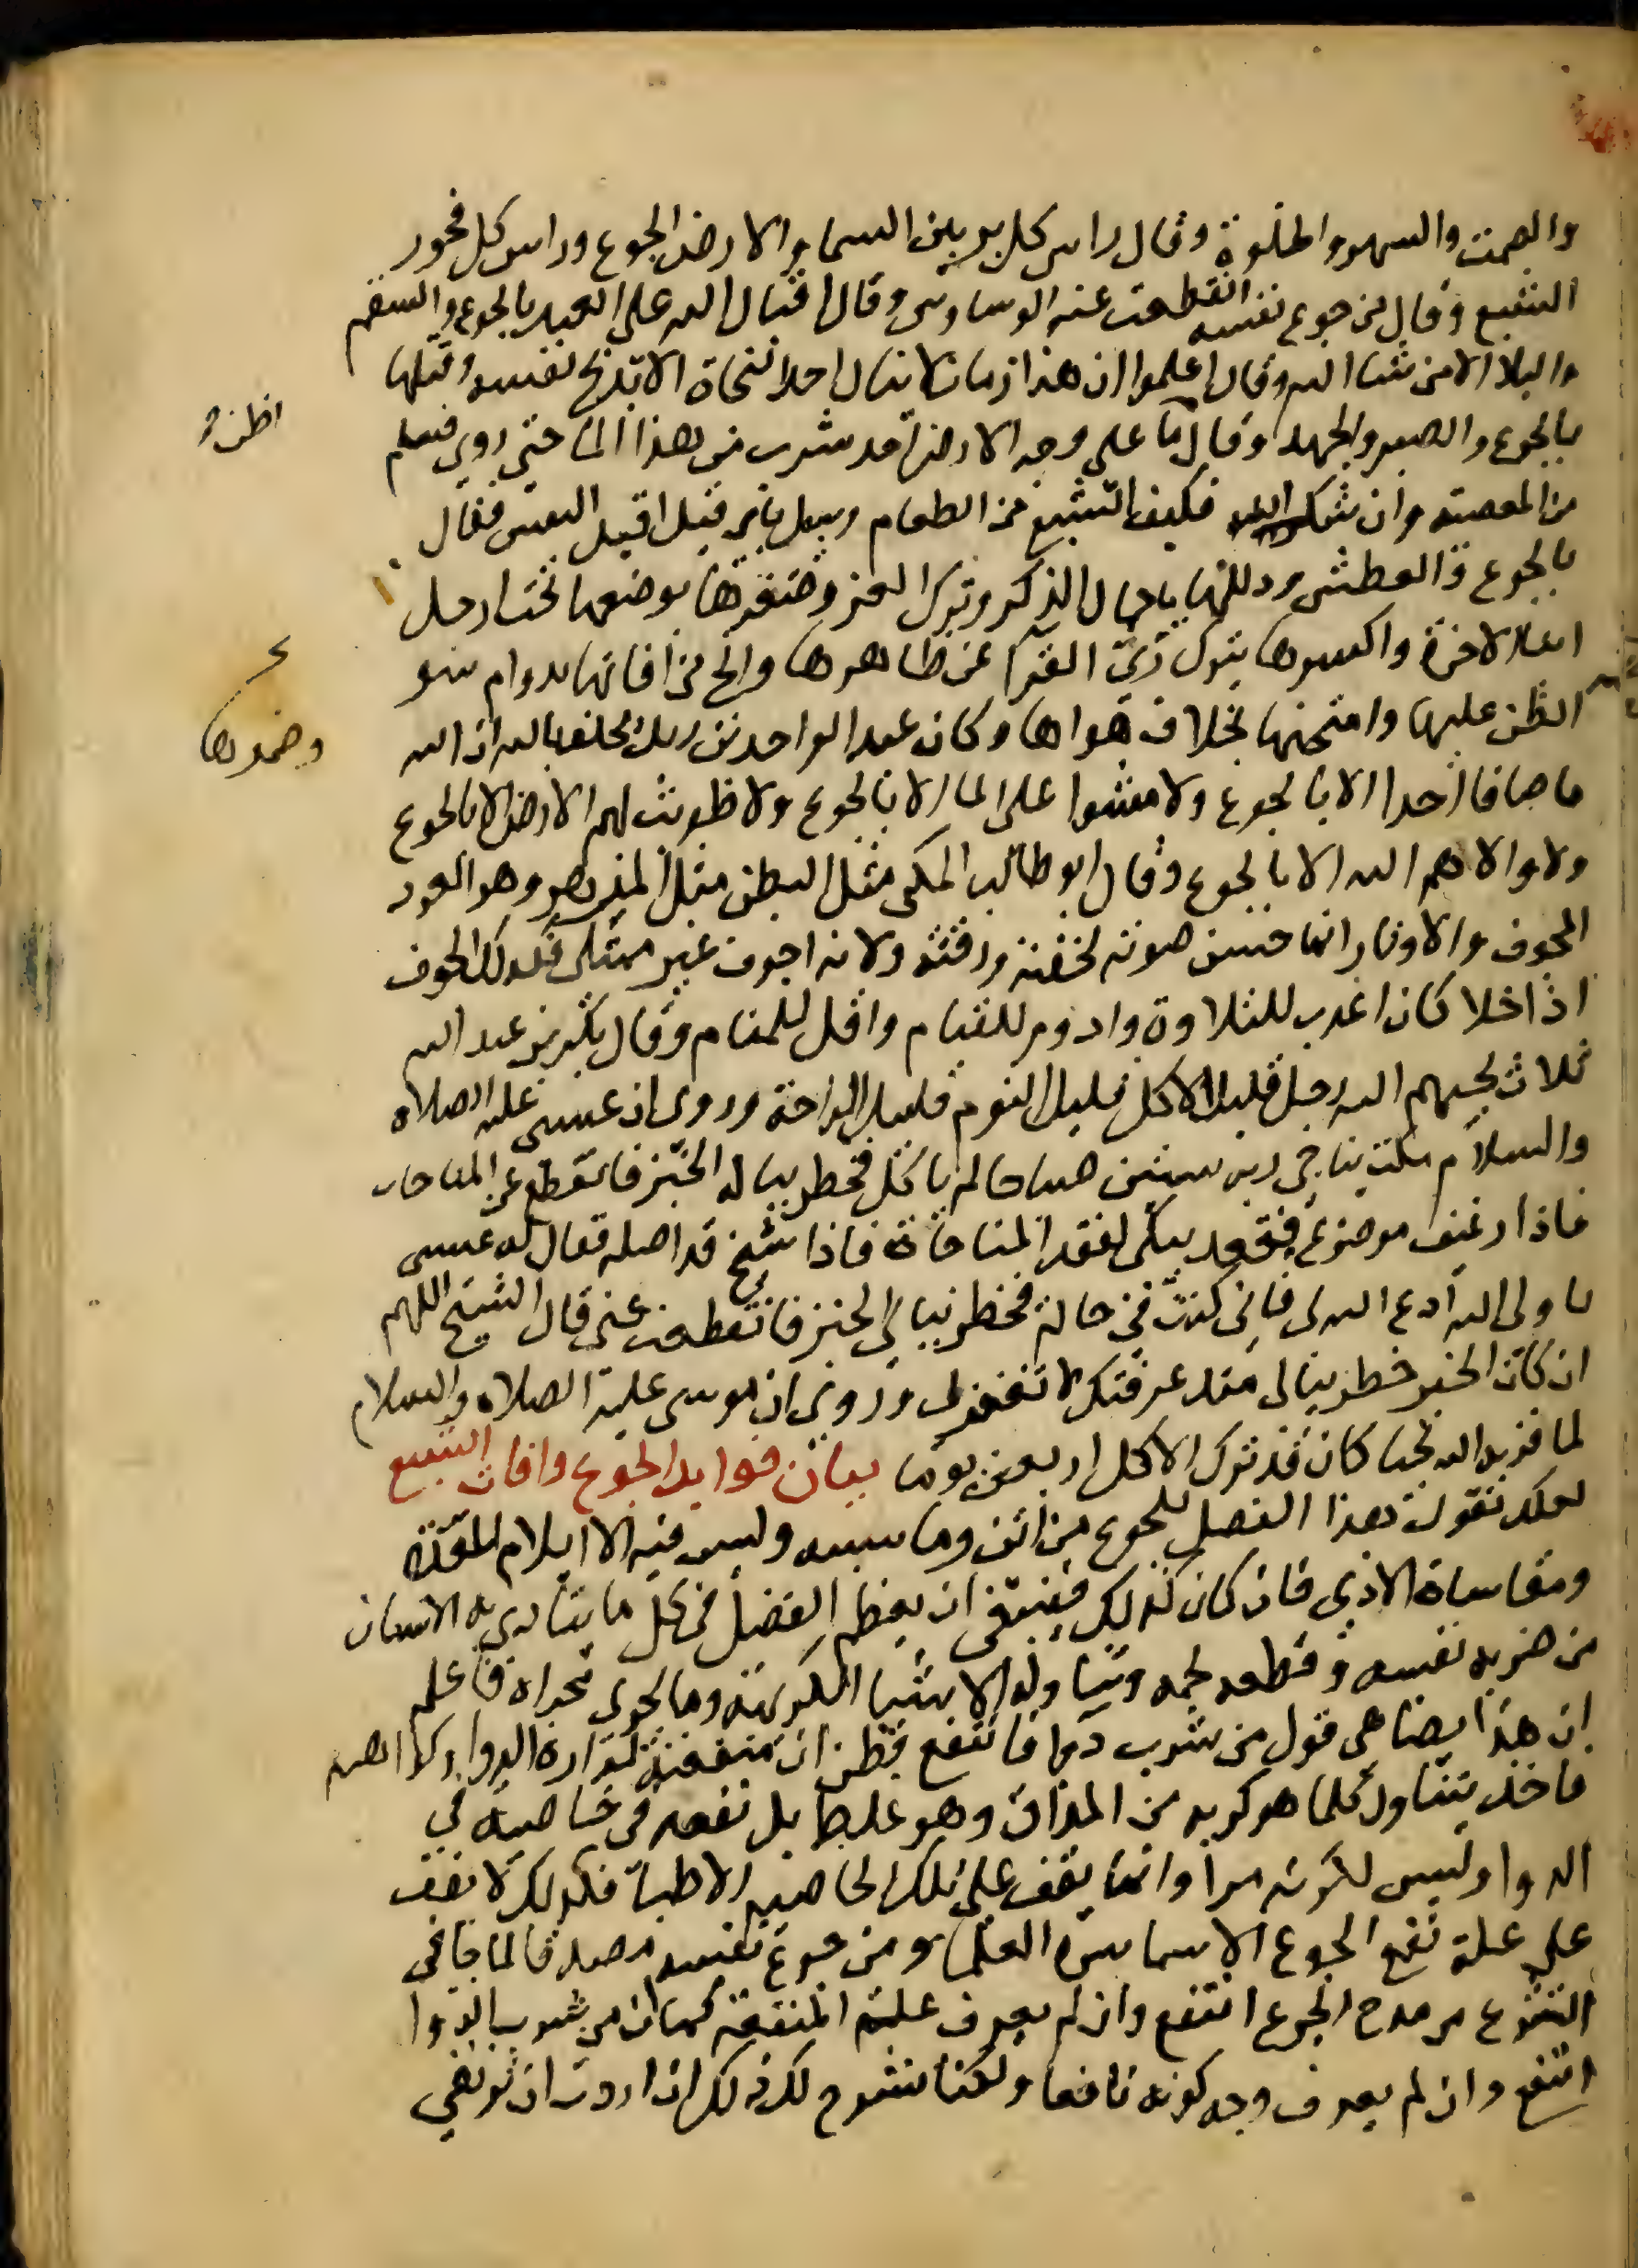 والصمت والسهر والخلوة وقال راس كل بر بين السما والارض الجوع وراس كل فجور
الشبع وقال من جوع نفسه انقطعت عنه الوساوس وقال اقبال الله على العبد بالجوع والسقم
والبلا الا من شا الله وقال اعلموا ان هذا زمان لا ينال احد النجاة الا بذبح نفسه وقتلها
بالجوع والصبر والجهد وقال ما على وجه الارض احد شرب من هذا الما حتى روي فسلم
اظنه
من المعصية وان شكر الله فكيف الشبع من الطعام وسيل باي قيل اقيد النفس فقال
بالجوع والعطش وذللها باخمال الذكر وترك العز وصغرها بوضعها تحت ارجل
ابنا الاخرة واكسرها بترك زي القرا عن ظاهرها وانج من افاتها بدوام سو
الظن عليها وامتحنها بخلاف هواها وكان عبد الواحد بن زيد يحلف بالله ان الله
وضمدها
ما صافا احدا الا بالجوع ولا مشوا على الما الا بالجوع ولا طويت لهم الارض الا بالجوع
ولا والاهم الله الا بالجوع وقال ابو طالب المكي مثل البطن مثل المزهر وهو العود
المجوف والاوتار انما حسن صوته لخفته ورقته ولانه اجوف غير ممتلي فكذلك الجوف
اذا خلا كان اعذب للتلاوة وادوم للقيام واقل للمنام وقال بكر بن عبد الله
ثلاث يحبهم الله رجل قليل الاكل قليل النوم قليل الراحة وروى ان عيسى عليه الصلاه
والسلام مكث يناجي ربه ستين صباحا لم ياكل فخطر بباله الخبز فانقطع عن المناجاه
فاذا رغيف موضوع فقعد يبكي لفقد المناجاة فاذا شيخ قد اظله فقال له عيسى
يا ولى الله ادع الله لى فاني كنت في حالة فخطر ببالي الخبز فانقطعت عني قال الشيخ اللهم
ان كان الخبز خطر ببالى منذ عرفتك لا تغفر لى وروى ان موسى عليه الصلاه والسلام
لما قربه الله نجيا كان قد ترك الاكل اربعين يوما بيان فوايد الجوع وافات الشبع
لعلك تقول هذا الفضل للجوع من اين وما سببه وليس فيه الا ايلام المعدة
ومقاساة الاذى فان كان كذلك فينبغي ان يعظم الفضل في كل ما يتاذى به الانسان
من ضربه نفسه وقطعه لحمه وتناوله الاشيا الكريهة وما يجرى مجراه فاعلم
ان هذا يضاهي قول من شرب دوا فانتفع فظن ان منفعته لمرارة الدوا وكراهته
فاخذ يتناول كلما هو كريه من المذاق وهو غلط بل نفعه في خاصية في
الدوا وليس لكونه مرا وانما يقف على تلك الخاصيه الاطبا فكذلك لا يقف
على علة نفع الجوع الا سماسرة العلما ومن جوع نفسه مصدقا لما جا في
الشرع من مدح الجوع انتفع وان لم يعرف علة المنفعة كما ان من شرب الدوا
انتفع وان لم يعرف وجه كونه نافعا ولكنا نشرح لك ذلك ان اردت ان ترتقي